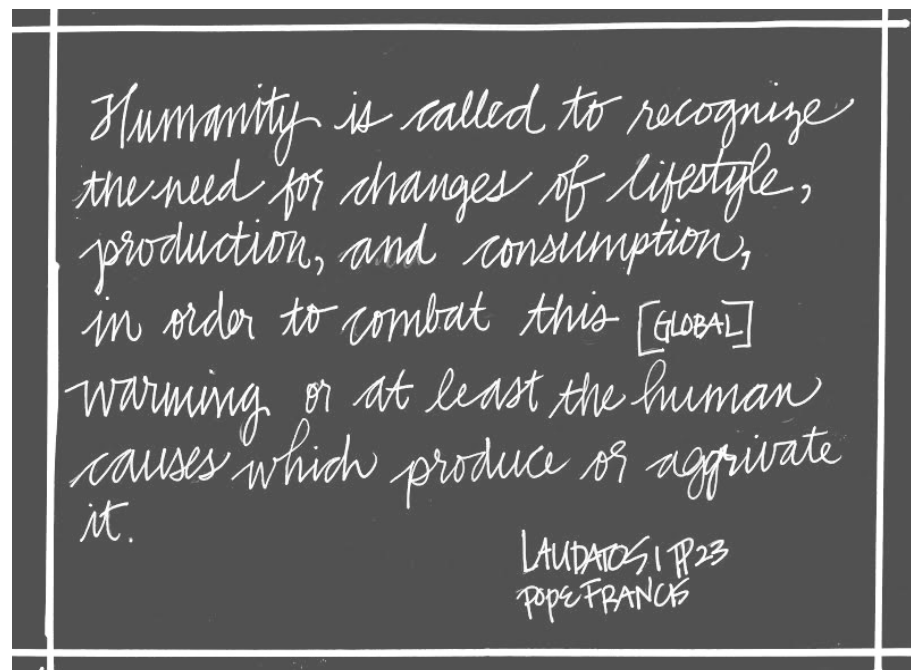 Humanity is called to recognize
the need for changes of lifestyle,
production, and consumption,
in order to combat this [GLOBAL]
warming or at least the human
causes which produce or aggrivate
it.
LAUDATO SI PP 23
POPE FRANCIS